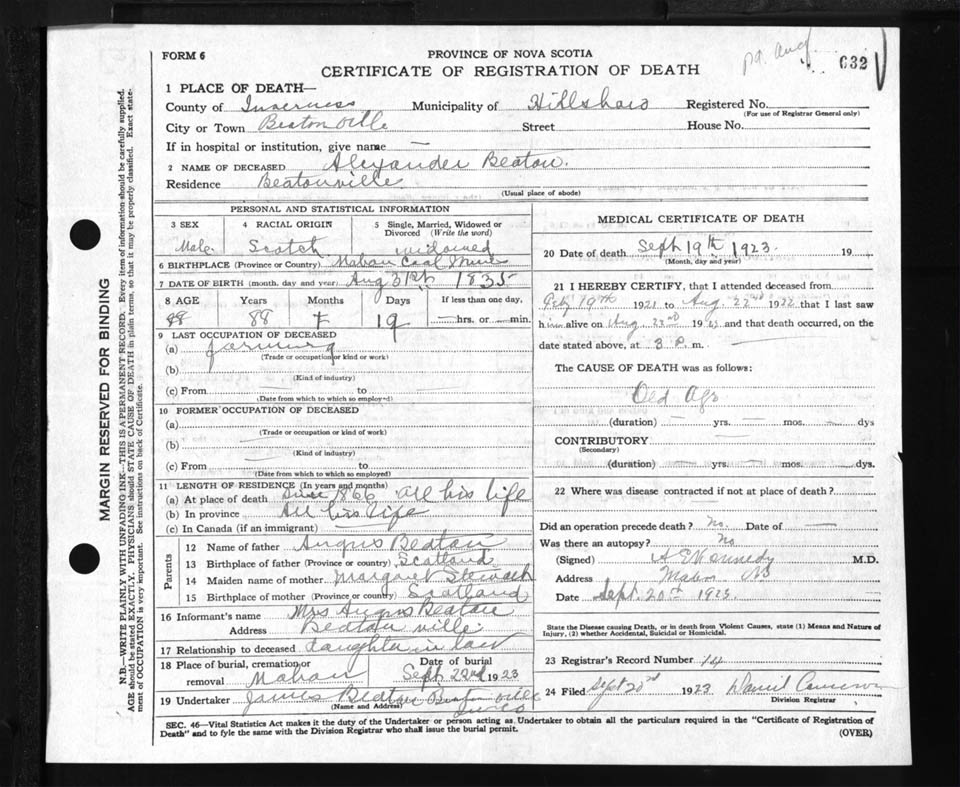 FORM 6
PROVINCE OF NOVA SCOTIA
CERTIFICATE OF REGISTRATION OF DEATH
632
1 PLACE OF DEATH—
County of Inverness Municipality of Registered No.
(For use of Registrar General only)
City or Town Beatonville Street House No.
If in hospital or institution, give name —
2 NAME OF DECEASED Alexander Beaton.
Residence Beatonville
(Usual place of abode)
MARGIN RESERVED FOR BINDING
N.B.—WRITE PLAINLY WITH UNFADING INK—THIS IS A PERMANENT RECORD. Every item of information should be carefully supplied.
AGE should be stated EXACTLY. PHYSICIANS should STATE CAUSE OF DEATH in plain terms, so that it may be properly classified. Exact state-
ment of OCCUPATION is very important. See instructions on back of Certificate.
PERSONAL AND STATISTICAL INFORMATION
3 SEX 4 RACIAL ORIGIN 5 Single, Married, Widowed or
Divorced (Write the word)
Male Scotch widowed
6 BIRTHPLACE (Province or Country) Mabou Coal Mines
7 DATE OF BIRTH (month, day and year) Aug 31st 1835
8 AGE Years Months Days If less than one day,
88 88 19 hrs. or min.
9 LAST OCCUPATION OF DECEASED
(a) farming
(Trade or occupation or kind or work)
(b)
(Kind of industry)
(c) From to
(Date from which to which so employed)
10 FORMER OCCUPATION OF DECEASED
(a)
(Trade or occupation or kind of work)
(b)
(Kind of industry)
(c) From to
(Date from which to which so employed)
11 LENGTH OF RESIDENCE (In years and months)
(a) At place of death since 1866 all his life
(b) In province All his life
(c) In Canada (if an immigrant)
Parents
12 Name of father Angus Beaton
13 Birthplace of father (Province or country) Scotland
14 Maiden name of mother Margaret
15 Birthplace of mother (Province or country) Scotland
16 Informant's name Mrs Angus Beaton
Address Beatonville
17 Relationship to deceased daughter in law
18 Place of burial, cremation or Date of burial
removal Mabou Sept 22nd 1923
19 Undertaker James Beaton Beatonville
(Name and Address)
MEDICAL CERTIFICATE OF DEATH
20 Date of death Sept 19th 1923. 19
(Month, day and year)
21 I HEREBY CERTIFY, that I attended deceased from
19th 1921 to Aug. 22nd 1922 that I last saw
him alive on Aug. 23rd 19 and that death occurred, on the
date stated above, at 3 P. m.
The CAUSE OF DEATH was as follows:
Old Age
(duration) — yrs. — mos. — dys
CONTRIBUTORY
(Secondary)
(duration) — yrs. — mos. — dys.
22 Where was disease contracted if not at place of death?
Did an operation precede death? No. Date of —
Was there an autopsy? No
(Signed) Kennedy M.D.
Address Mabou NS
Date Sept. 20th 1923.
State the Disease causing Death, or in death from Violent Causes, state (1) Means and Nature of
Injury, (2) whether Accidental, Suicidal or Homicidal.
23 Registrar's Record Number 14
24 Filed Sept 1923 Daniel Cameron
Division Registrar
SEC. 46—Vital Statistics Act makes it the duty of the Undertaker or person acting as Undertaker to obtain all the particulars required in the "Certificate of Registration of
Death" and to fyle the same with the Division Registrar who shall issue the burial permit. (OVER)